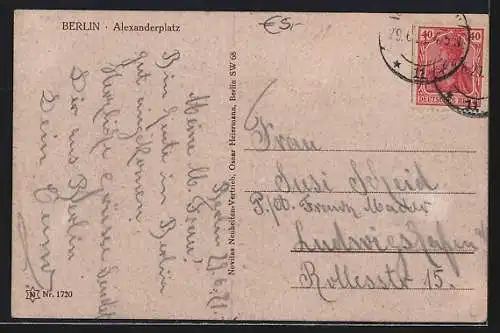 BERLIN · Alexanderplatz
€5,-
Berlin 29.6.21.
Meine lb. Frau!
Bin heute in Berlin
gut angekommen
Herzliche Grüsse sendet
Dir aus Berlin
Dein
Nr. 1720
Novitas Neuheiten-Vertrieb, Oscar Heiermann, Berlin SW 68
40 40
29.6.
11
Frau
Susi Scheid
Franz Mader
Ludwigshafen
Rollesstr 15.